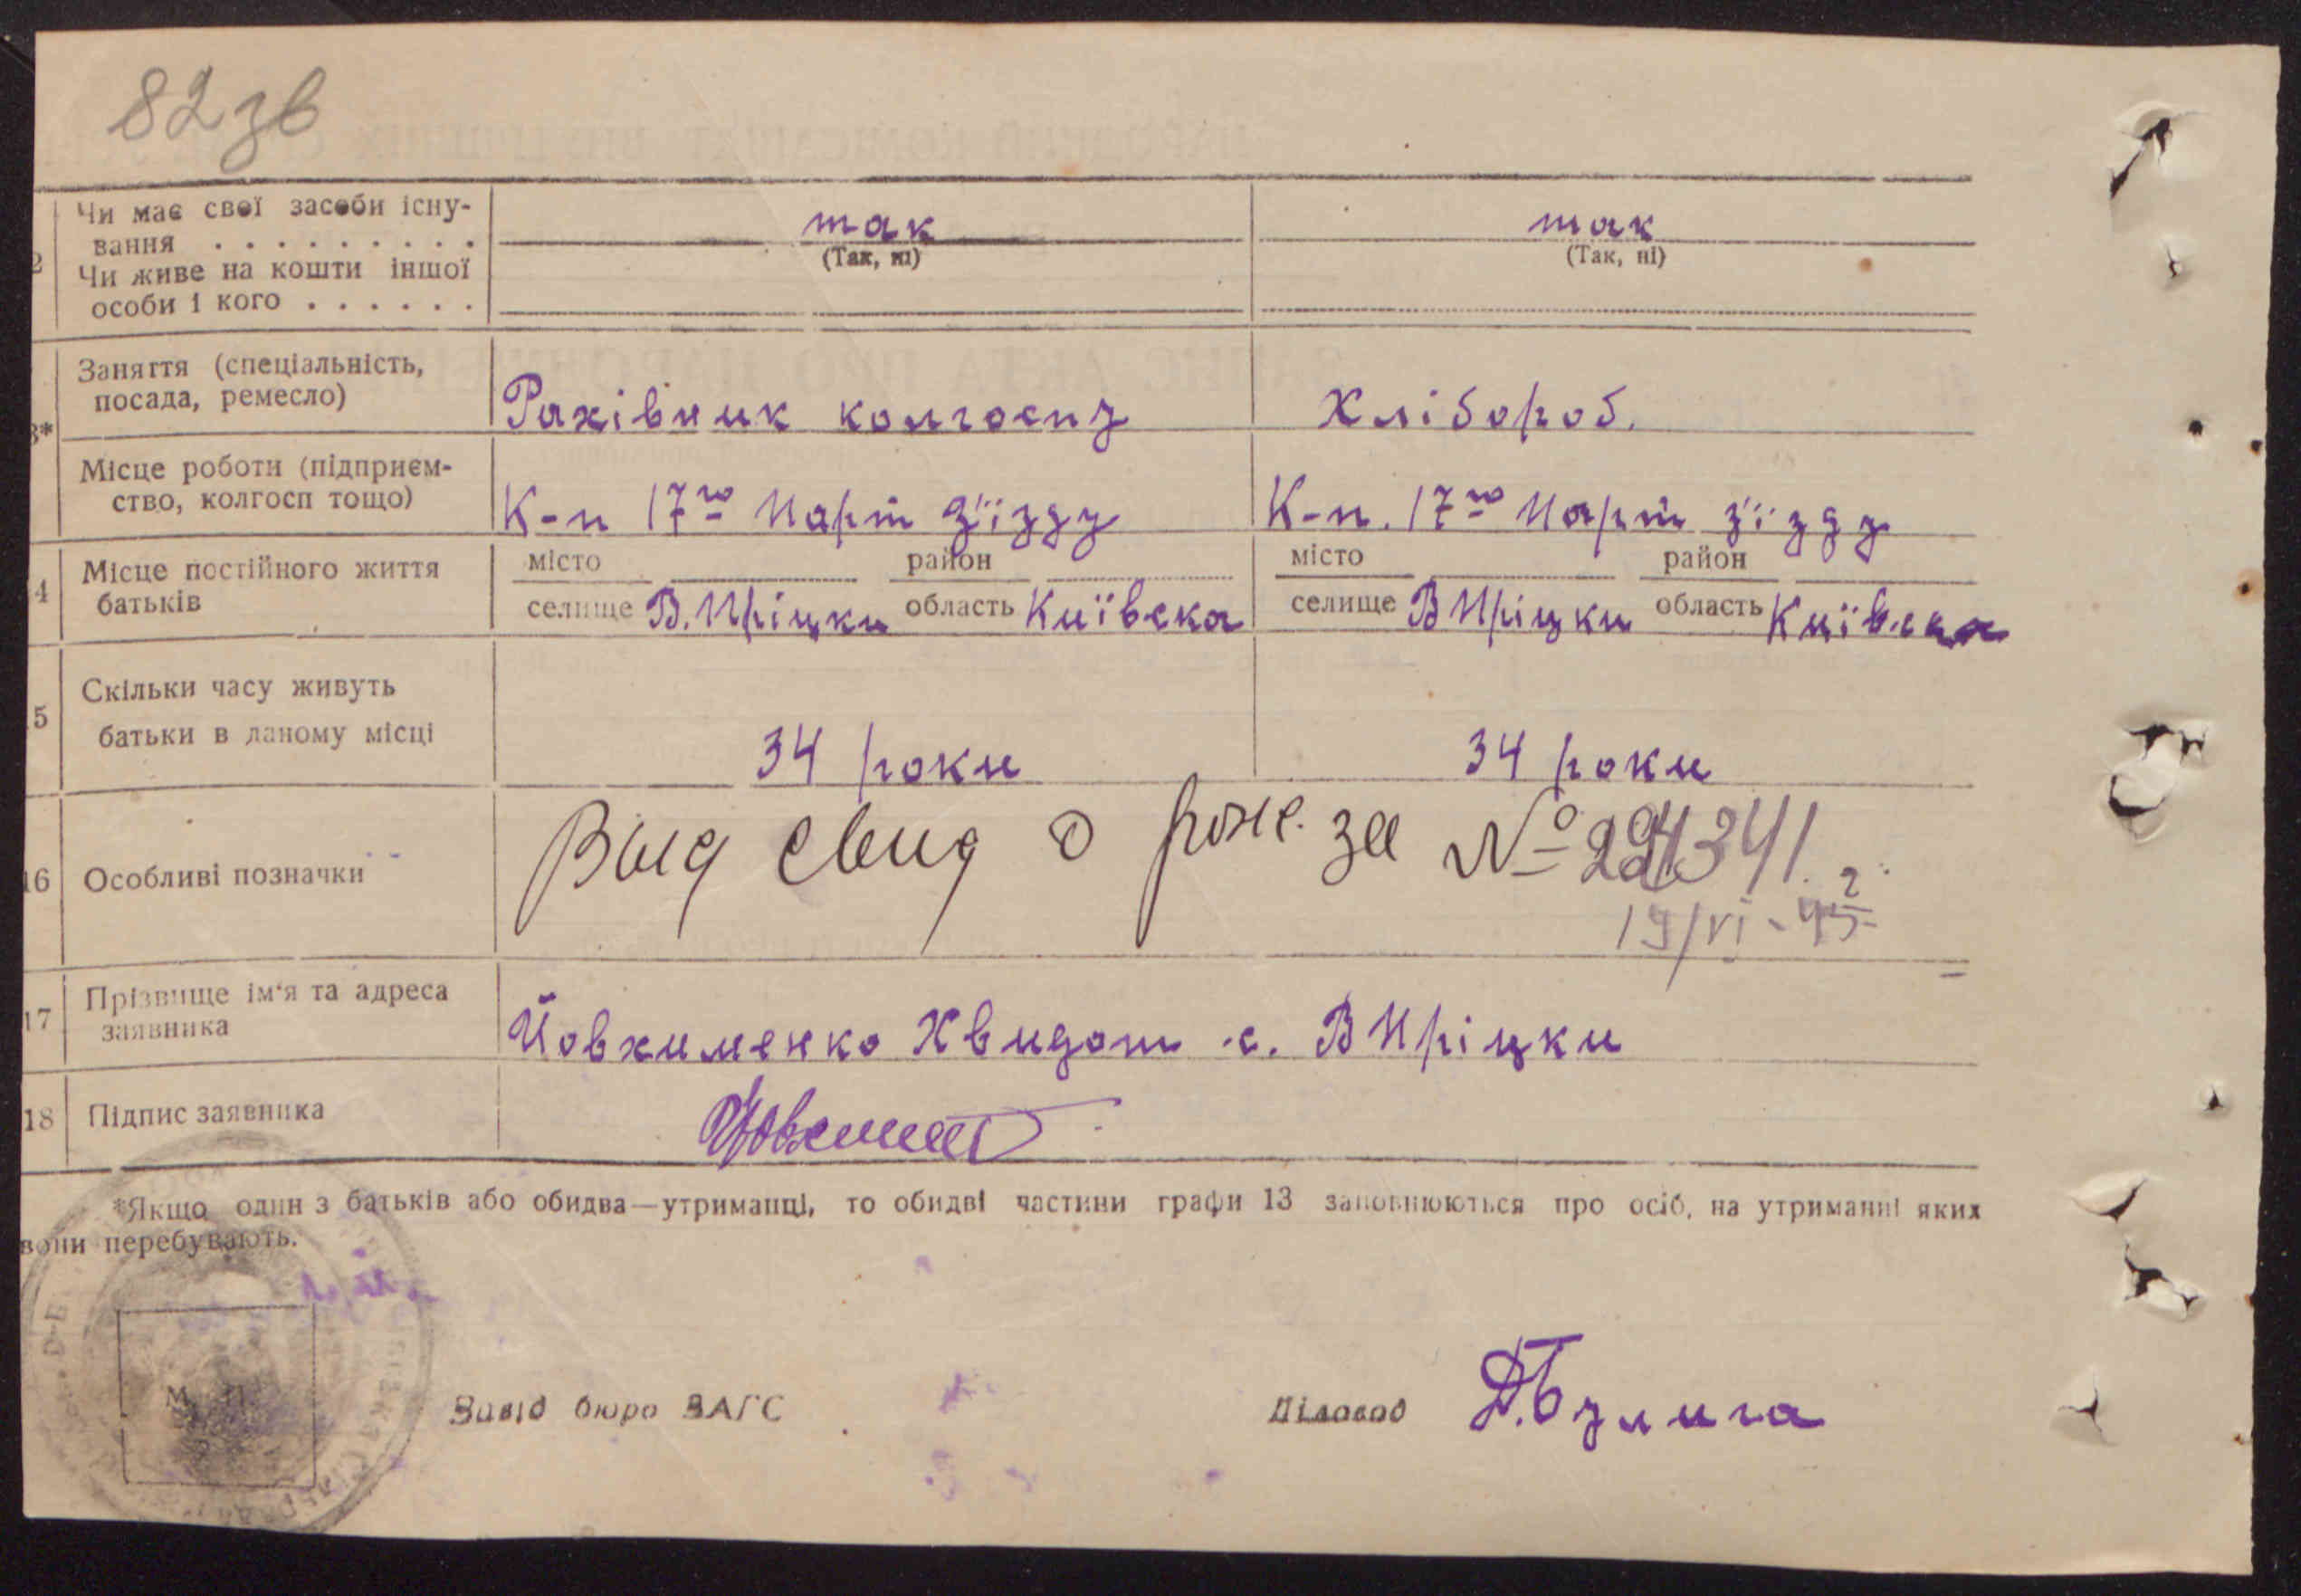 82 зв
2 Чи має свої засоби існу-
вання . . . . . . . . . так так
(Так, ні) (Так, ні)
Чи живе на кошти іншої
особи і кого . . . . . .
3* Заняття (спеціальність,
посада, ремесло) Рахівник колгоспу Хлібороб.
Місце роботи (підприєм-
ство, колгосп тощо) К-п 17го Парт з'їзду К-п. 17го Парт з'їзду
4 Місце постійного життя місто район місто район
батьків селище В.Пріцки область Київска селище В Пріцки область Київска
5 Скільки часу живуть
батьки в даному місці 34 роки 34 роки
16 Особливі позначки Выд свид о рожд. за № 294341.
19/VI - 45 г
17 Прізвище ім'я та адреса
заявника Йовхименко Хвидот с. В Пріцки
18 Підпис заявника
*Якщо один з батьків або обидва—утриманці, то обидві частини графи 13 заповнюються про осіб, на утриманні яких
вони перебувають.
М. П.
Завід бюро ЗАГС Діловод Д.Булига